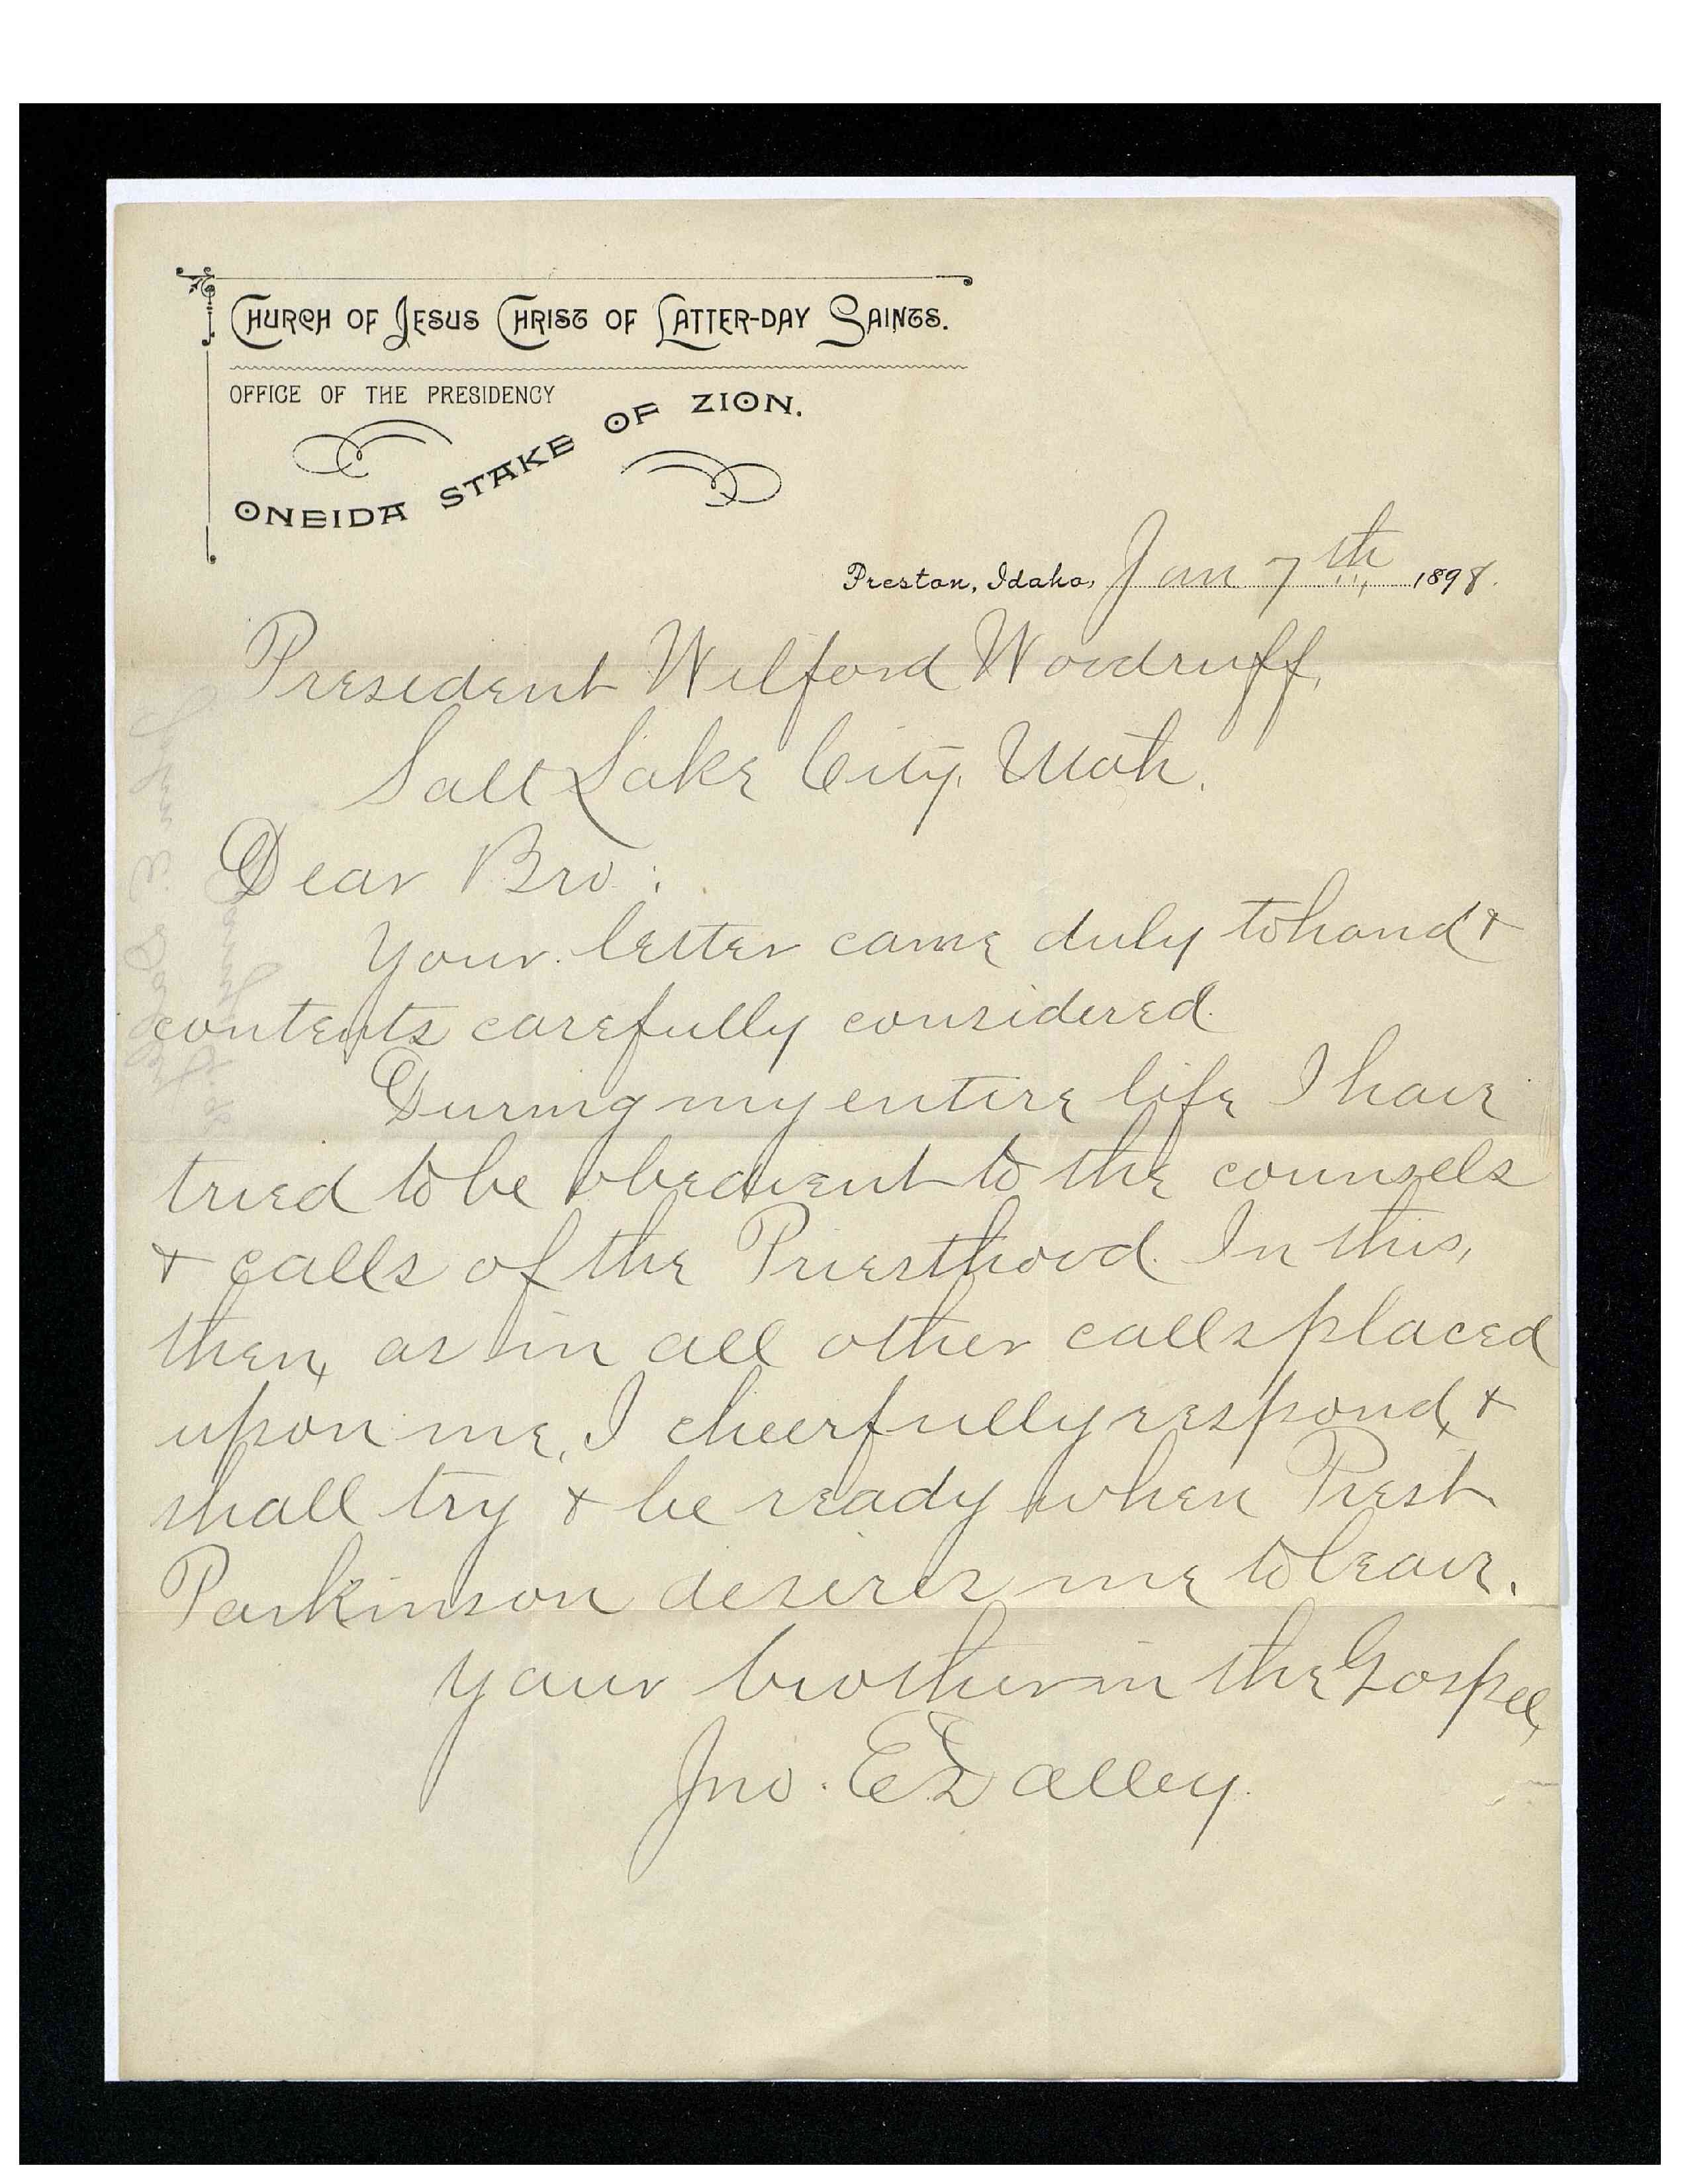 CHURCH OF JESUS CHRIST OF LATTER-DAY SAINTS.
OFFICE OF THE PRESIDENCY
ONEIDA STAKE OF ZION.
Preston, Idaho, Jan 7th 1898.
President Wilford Woodruff,
Salt Lake City, Utah.
Dear Bro:
Your letter came duly to hand &
contents carefully considered.
During my entire life I have
tried to be obedient to the counsels
& calls of the Priesthood. In this,
then, as in all other calls placed
upon me, I cheerfully respond, &
shall try & be ready when Prest
Parkinson desires me to leave.
Your brother in the Gospel,
Jno. E Dalley.